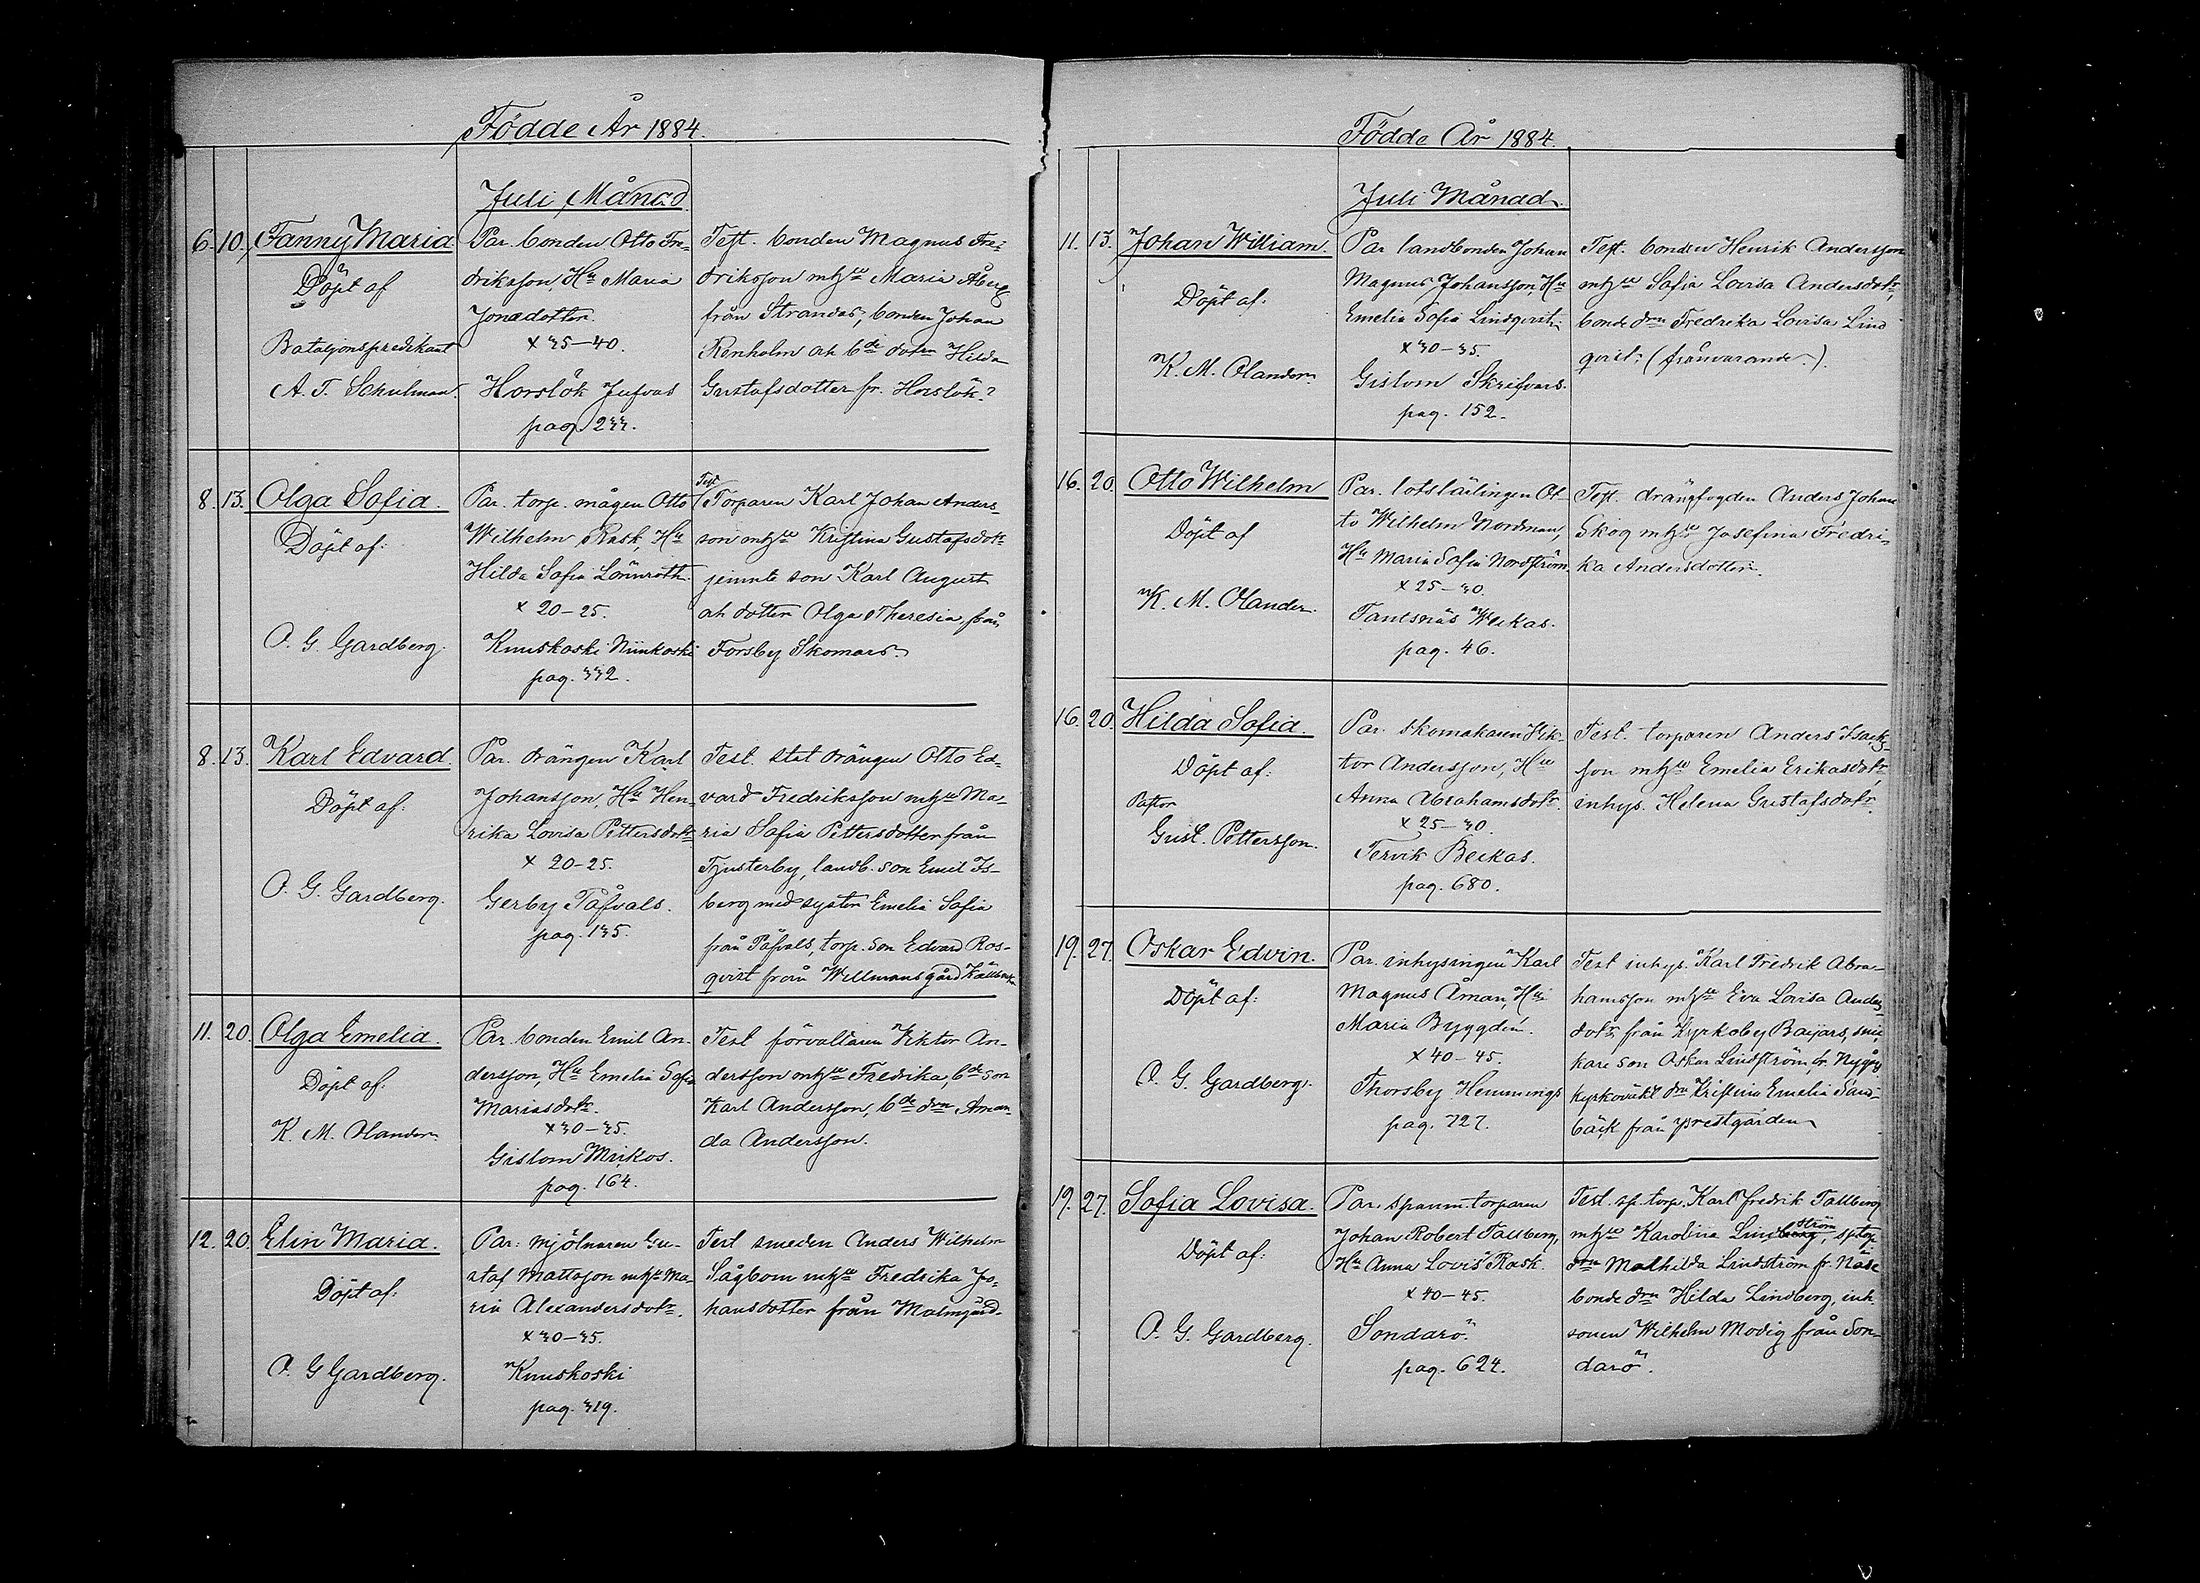 Födde År 1884.
Juli Månad
6. 10. Fanny Maria
Döpt af
Bataljonspredikant
A. T. Schulman.
Par. bonden Otto Fre-
driksson, Hu Maria
Jonædotter.
x 35-40.
Horslök Jufvas
pag. 233.
Test. bonden Magnus Fre-
driksson mhstr Maria Åberg
från Strandas, bonden Johan
Renholm och bde dotrn Hilda
Gustafsdotter fr. Horslök.
8. 13. Olga Sofia.
Döpt af:
O. G. Gardberg.
Par. torp. mågen Otto
Wilhelm Rask, Hu
Hilda Sofia Lönnroth.
x 20-25.
Kuuskoski Niinikoski
pag. 332.
Test.
Torparen Karl Johan Anders-
son mhstr Kristina Gustafsdotr
jemnte son Karl August
och dotter Olga Theresia, från
Forsby Skomars.
8. 13. Karl Edvard.
Döpt af:
O. G. Gardberg.
Par. drängen Karl
Johansson, Hu Hen-
rika Lovisa Pettersdotr
x 20-25.
Gerby Påfvals.
pag. 135.
Test. stat drängen Otto Ed-
vard Fredriksson mhstr Ma-
ria Sofia Pettersdotter från
Tjusterby, landb. son Emil Is-
berg med syster Emelia Sofia
från Påfvals, torp. son Edvard Ros-
qvist från Willmansgård
11. 20. Olga Emelia.
Döpt af:
K. M. Olander
Par. bonden Emil An-
dersson, Hu Emelia Sofia
Mariasdotr.
x 30-35.
Gislom Mickos.
pag. 164.
Test förvaltaren Viktor An-
dersson mhstr Fredrika, bde son
Karl Andersson, bde drn Aman-
da Andersson.
12. 20. Elin Maria.
Döpt af:
O. G Gardberg.
Par: mjölnaren Gu-
staf Mattsson mhstr Ma-
ria Alexandersdotr.
x 30-35.
Kuuskoski
pag. 319.
Test smeden Anders Wilhelm
Sågbom mhstr Fredrika Jo-
hansdotter från Malmgård.
Födde År 1884.
Juli Månad.
11. 13. Johan William.
Döpt af:
K. M. Olander
Par landbonden Johan
Magnus Johansson, Hu
Emelia Sofia Lindqvist.
x 30-35.
Gislom Skrifvars.
pag. 152.
Test. bonden Henrik Andersson
mhstr Sofia Lovisa Andersdotr,
bonde drn Fredrika Lovisa Lind
qvist. (frånvarande.)
16. 20. Otto Wilhelm
Döpt af
K. M. Olander.
Par. lotslärlingen Ot-
to Wilhelm Nordman,
Hu Maria Sofia Nordström
x 25-30.
Tantsnäs Weckas.
pag. 46.
Test. drängfogden Anders Johan
Skog mhstr Josefina Fredri-
ka Andersdotter.
16. 20. Hilda Sofia.
Döpt af:
Pastor
Gust. Pettersson.
Par. skomakaren Vik-
tor Andersson, Hu
Anna Abrahamsdotr.
x 25-30.
Tervik Beckas.
pag. 680.
Test. torparen Anders Isack-
son mhstr Emelia Eriksdotr
inhys. Helena Gustafsdotr.
19. 27. Oskar Edvin.
Döpt af:
O. G. Gardberg.
Par. inhysingen Karl
Magnus Åman, Hu
Maria Byggdén.
x 40-45.
Thorsby Hemmings
pag. 727.
Test inhys. Karl Fredrik Abra-
hamsson mhstr Eva Lovisa Anders-
dotr från Kyrkoby Baijars, snic-
kare son Oskar Lindström, fr. Nygård
kyrkovakt drn Kristina Emelia Sand-
bäck från prestgården
19. 27. Sofia Lovisa.
Döpt af:
O. G. Gardberg.
Par. spanm. torparen
Johan Robert Tallberg,
Hu Anna Lovis Rask.
x 40-45.
Sondarö.
pag. 624.
Test. sp. torp. Karl Fredrik Tallberg
mhstr Karolina Lindström, sp torp
drn Mathilda Lindström fr. Näse
bonde drn Hilda Lindberg, inh.
sonen Wilhelm Modig från Son-
darö.